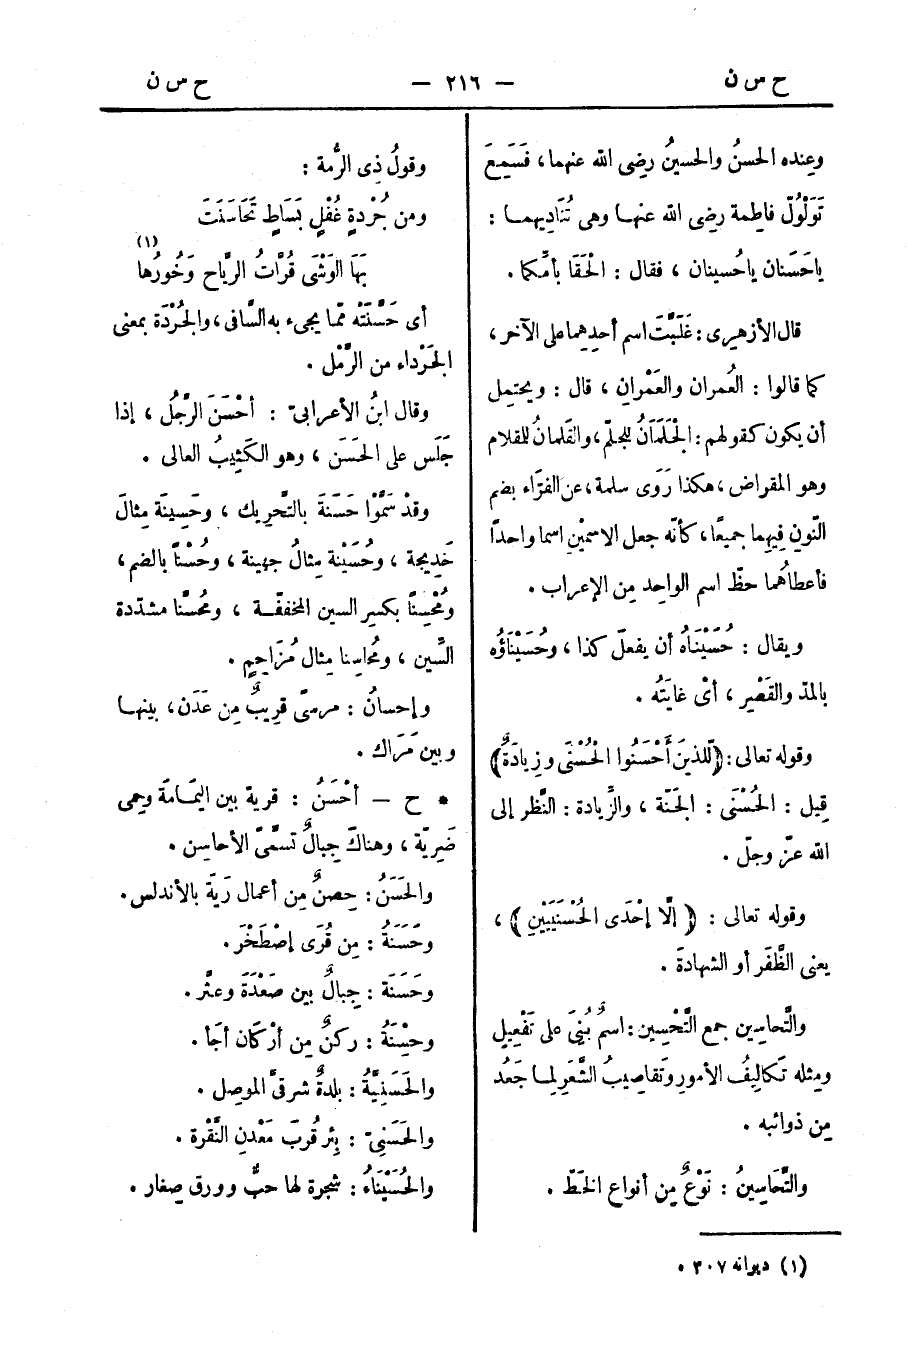 ح س ن — ٢١٦ — ح س ن
وعنده الحسنُ والحسينُ رضى الله عنهما، فَسَمِعَ
تَوَلْوُلَ فاطمة رضى الله عنها وهى تُنَادِيهما :
ياحَسَنان ياحُسينان ، فقال : الْحَقَا بأمِّكما .
قال الأزهرى : غَلَّبَتَ اسم أحدِهِما على الآخر ،
كما قالوا : العُمران والعَمْرانِ ، قال : ويحتمل
أن يكون كقولهم : الْجَلَمَانُ للجلَم، والقَلَمانُ للقلام
وهو المقراض ، هكذا رَوَى سلمة، عن الفرّاء بضم
النّونِ فِيهِما جميعًا، كأنّه جعل الاسمْين اسما واحداً
فأعطاهُما حظّ اسم الواحِد مِن الإعراب .
ويقال : حُسَيْنَاهُ أن يفعلَ كذا ، وحُسَيْنَاؤُه
بالمدّ والقَصْرِ ، أىْ غايَتُه .
وقوله تعالى : ﴿لِّلذينَ أَحْسَنُوا الْحُسْنَى وزِيادَةٌ﴾
قيل : الحُسْنَى : الجَنّة ، والزِّيادة : النَّظر إلى
الله عزّ وجلّ .
وقوله تعالى : ﴿ إلَّا إحْدَى الحُسْنَيَيْنِ ﴾ ،
يعنى الظَّفَر أو الشهادةَ .
والتَّحاسِين جمع التَّحْسِين : اسمٌ بُنِىَ على تَفْعِيلٍ
ومِثله تَكالِيفُ الأمورِ وتَقاصِيبُ الشَّعَرِ لما جَعُدَ
مِن ذوائبه .
والتَّحَاسِينُ : نَوْعٌ مِن أنواع الخَطّ .
وقولُ ذِى الرُّمة :
ومن جُرْدةٍ غُفْلٍ بَسَاطٍ تَحَاسَنَتَ
بَهَا الوَشْىَ قُرَّاتُ الرِّياح وَخُورُها (١)
أى حَسَّنَتْه ممّا يجىء به السَّافى ، والجُرْدَة بمعنى
الجَرْداء من الرَّمْل .
وقال ابنُ الأعرابىّ : أحْسَنَ الرَّجُل ، إذا
جَلَس على الحَسَن ، وهو الكَثِيبُ العالى .
وقدْ سَمَّوْا حَسَنَةَ بالتَّحْرِيك ، وحَسِينَة مِثالَ
خَدِيجة ، وحُسَيْنة مِثالُ جهينة ، وحُسْنًا بالضم ،
ومُحْسِنًا بكسرِ السين المخففّة ، ومحُسّنا مشدّدة
السِّين ، ومحُاسِنا مثال مُزَاحِمٍ .
وإحسانٌ : مرسىً قرِيبٌ مِن عَدَن ، بينها
وبين مَرَاك .
* ح — أحْسَنُ : قرية بين اليَمَامَة وحِمى
ضَرِيّة ، وهناكَ جِبالٌ تسمَّى الأحاسِن .
والحَسَنُ : حِصنٌ مِن أعمال رَيّة بالأندلس .
وحَسَنَةُ : مِن قُرَى إصْطَخْرَ .
وحَسَنَة : جِبالٌ بين صَعْدَةَ وعثَّر .
وحِسْنَةُ : ركنٌ مِن أرْكَان أجَأ .
والحَسَنِيَّةُ : بلدةٌ شرقىَّ الموصِل .
والحَسَنِىّ : بِئر قُربَ مَعْدن النَّقْرة .
والحُسَيْنَاءُ : شجرة لها حبٌّ وورق صِغار .
(١) ديوانه ٣٠٧ .